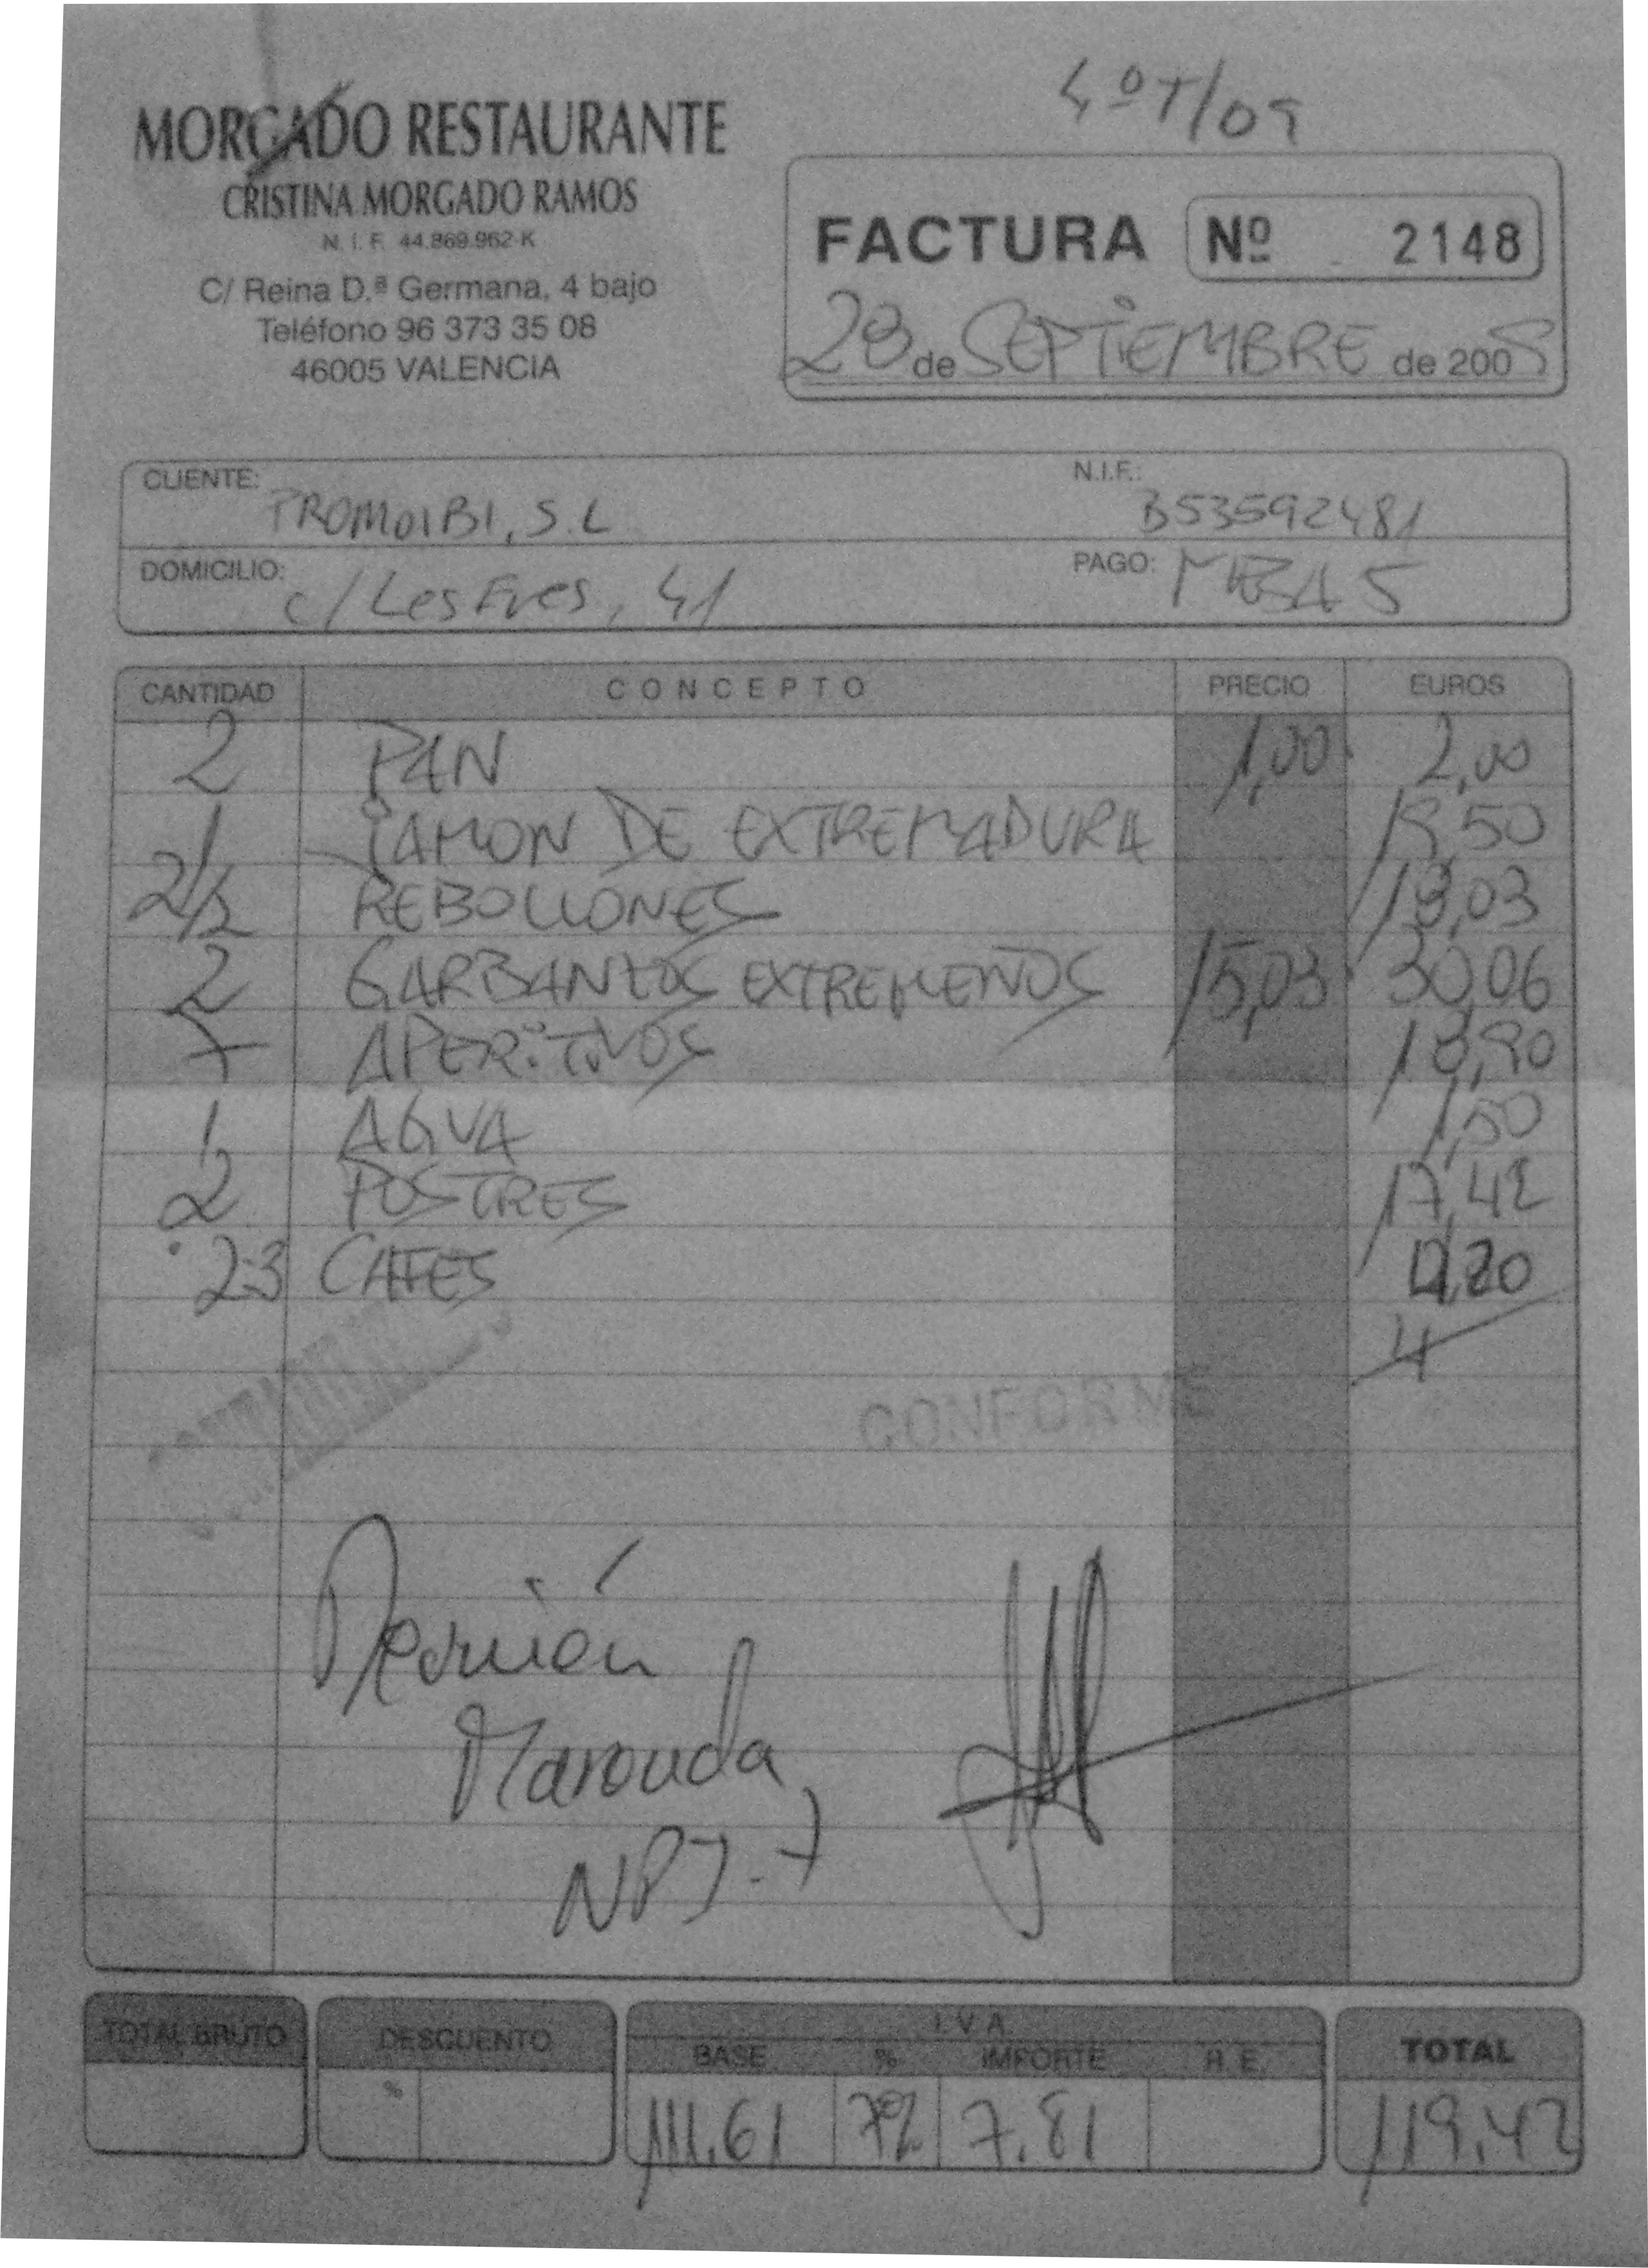 4ºT/09
MORGADO RESTAURANTE
CRISTINA MORGADO RAMOS
N. I. F. 44.869.962-K
C/ Reina D.ª Germana, 4 bajo
Teléfono 96 373 35 08
46005 VALENCIA
FACTURA Nº 2148
28 de SEPTIEMBRE de 2009
CLIENTE: PROMOIBI, S.L
N.I.F.: B53592481
DOMICILIO: c/ Les Eres, 41
PAGO: MESA 5
CANTIDAD CONCEPTO PRECIO EUROS
2 PAN 1,00 2,00
1 JAMON DE EXTREMADURA 19,50
2/2 REBOLLONES 18,03
2 GARBANZOS EXTREMEÑOS 15,03 30,06
7 APERITIVOS 18,90
1 AGUA 1,50
2 POSTRES 17,42
23 CAFES
4
CONFORME
Reunión
Marouda
NPJ-7
TOTAL BRUTO DESCUENTO I.V.A. TOTAL
BASE % IMPORTE R. E.
%
111.61 7% 7.81 119.42